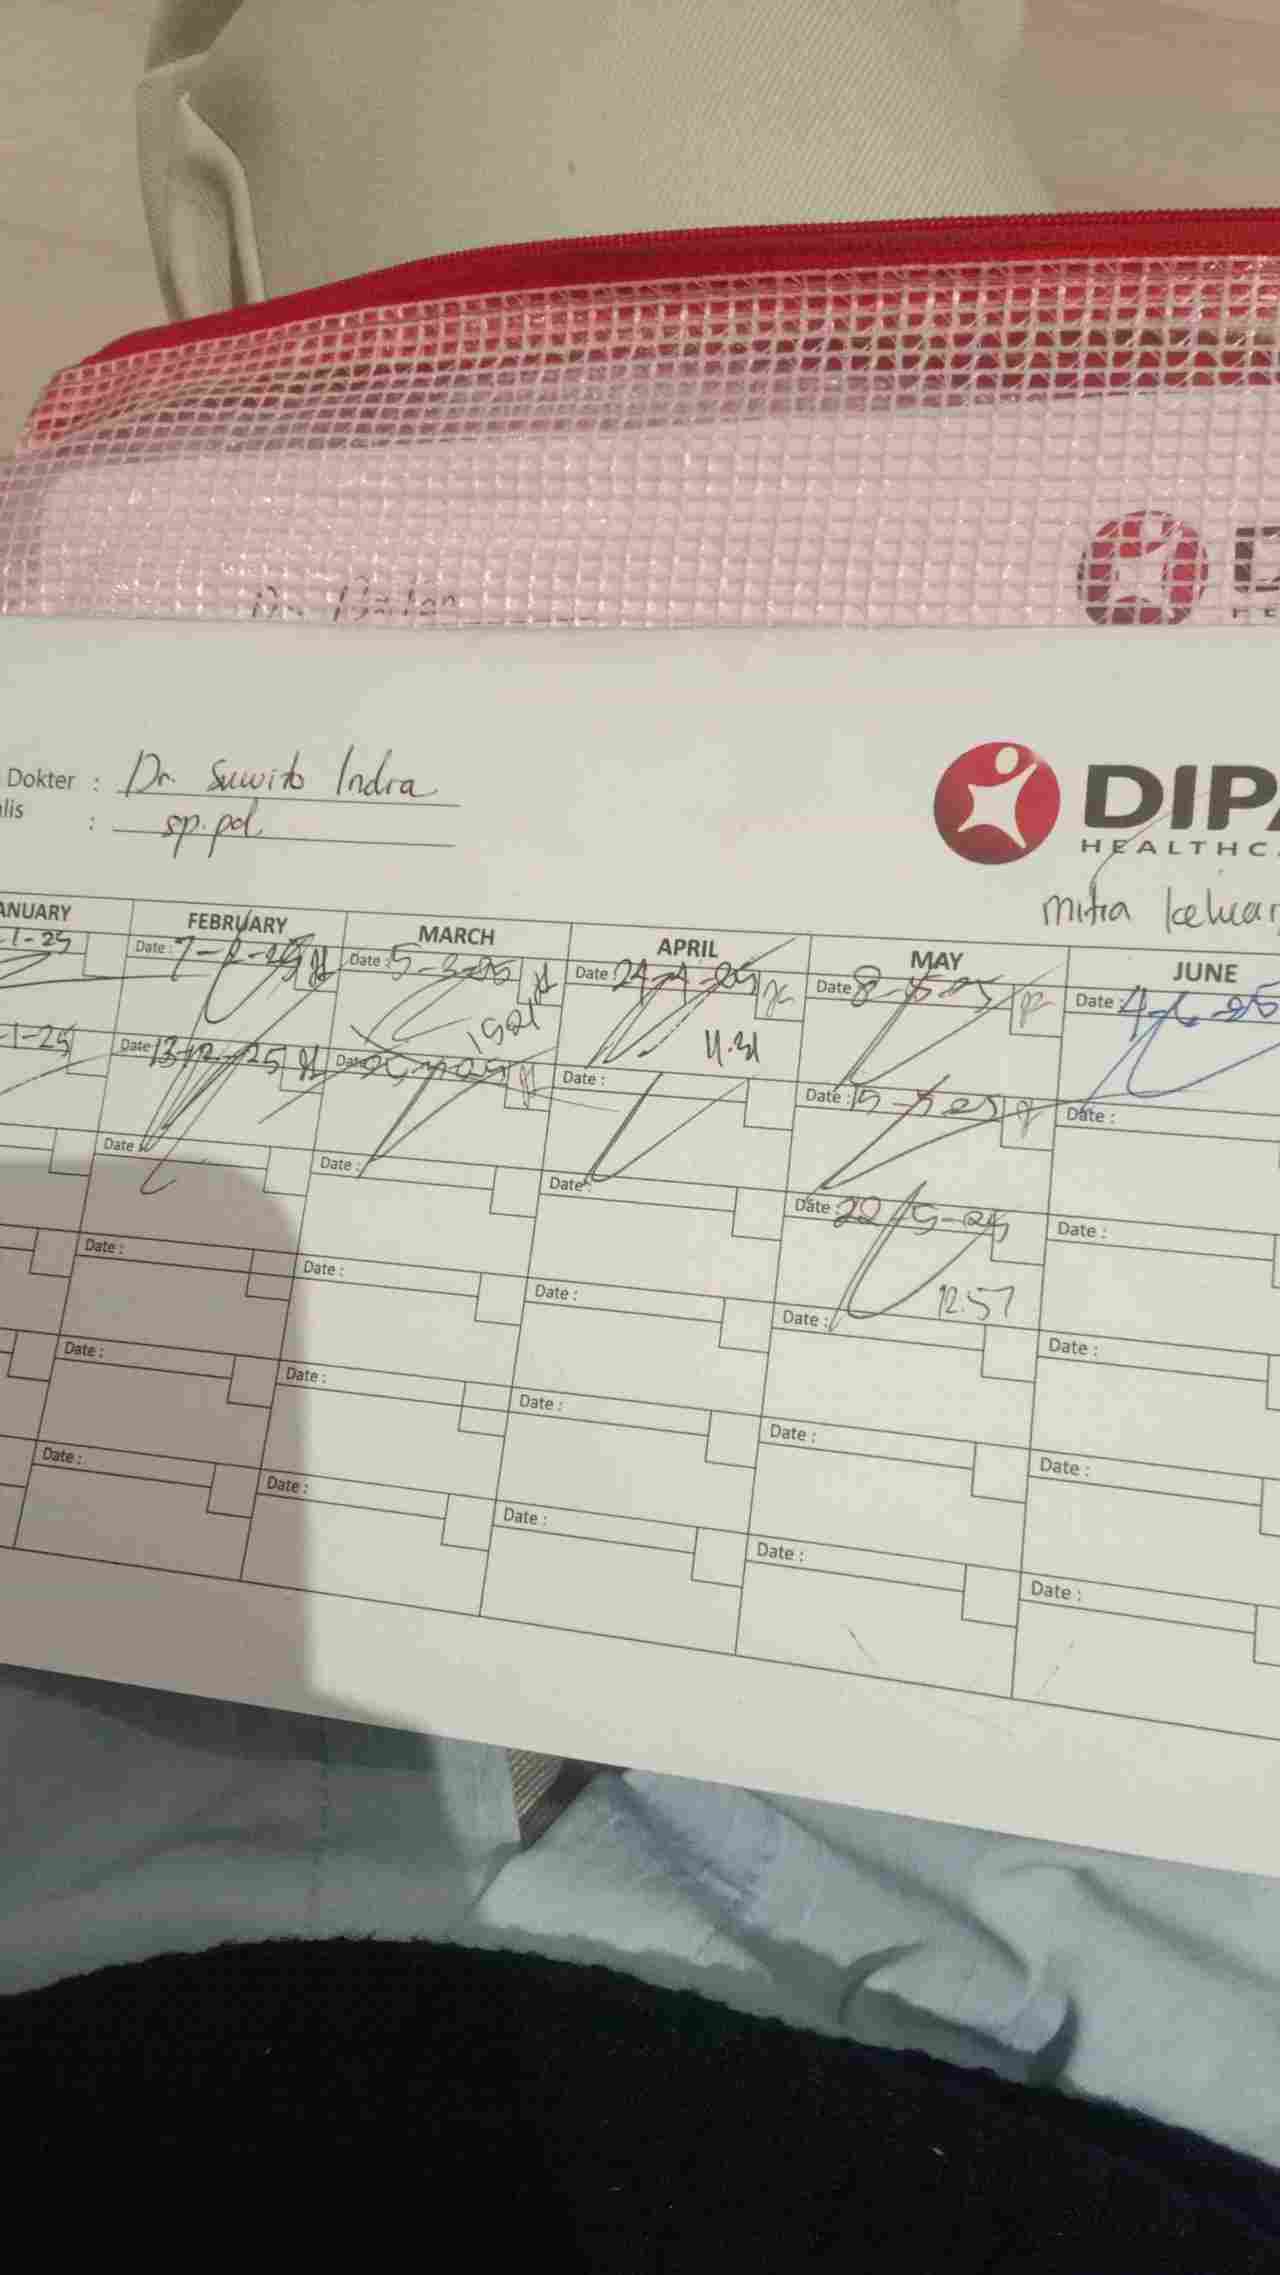 Dokter : Dr. Suwito Indra
lis : sp.pd
DIPA
HEALTHC
mitra keluar
ANUARY FEBRUARY MARCH APRIL MAY JUNE
-1-25 Date : 7-2-25 Date : 5-3-25 Date : 24-4-25 Date : 8-5-25 Date : 4-6-25
11.31
-1-25 Date : 13-2-25 Date : Date : Date : 15-5-25 Date :
Date : Date : Date : Date : 22-5-25 Date :
12.57
Date : Date : Date : Date : Date :
Date : Date : Date : Date : Date :
Date : Date : Date : Date : Date :